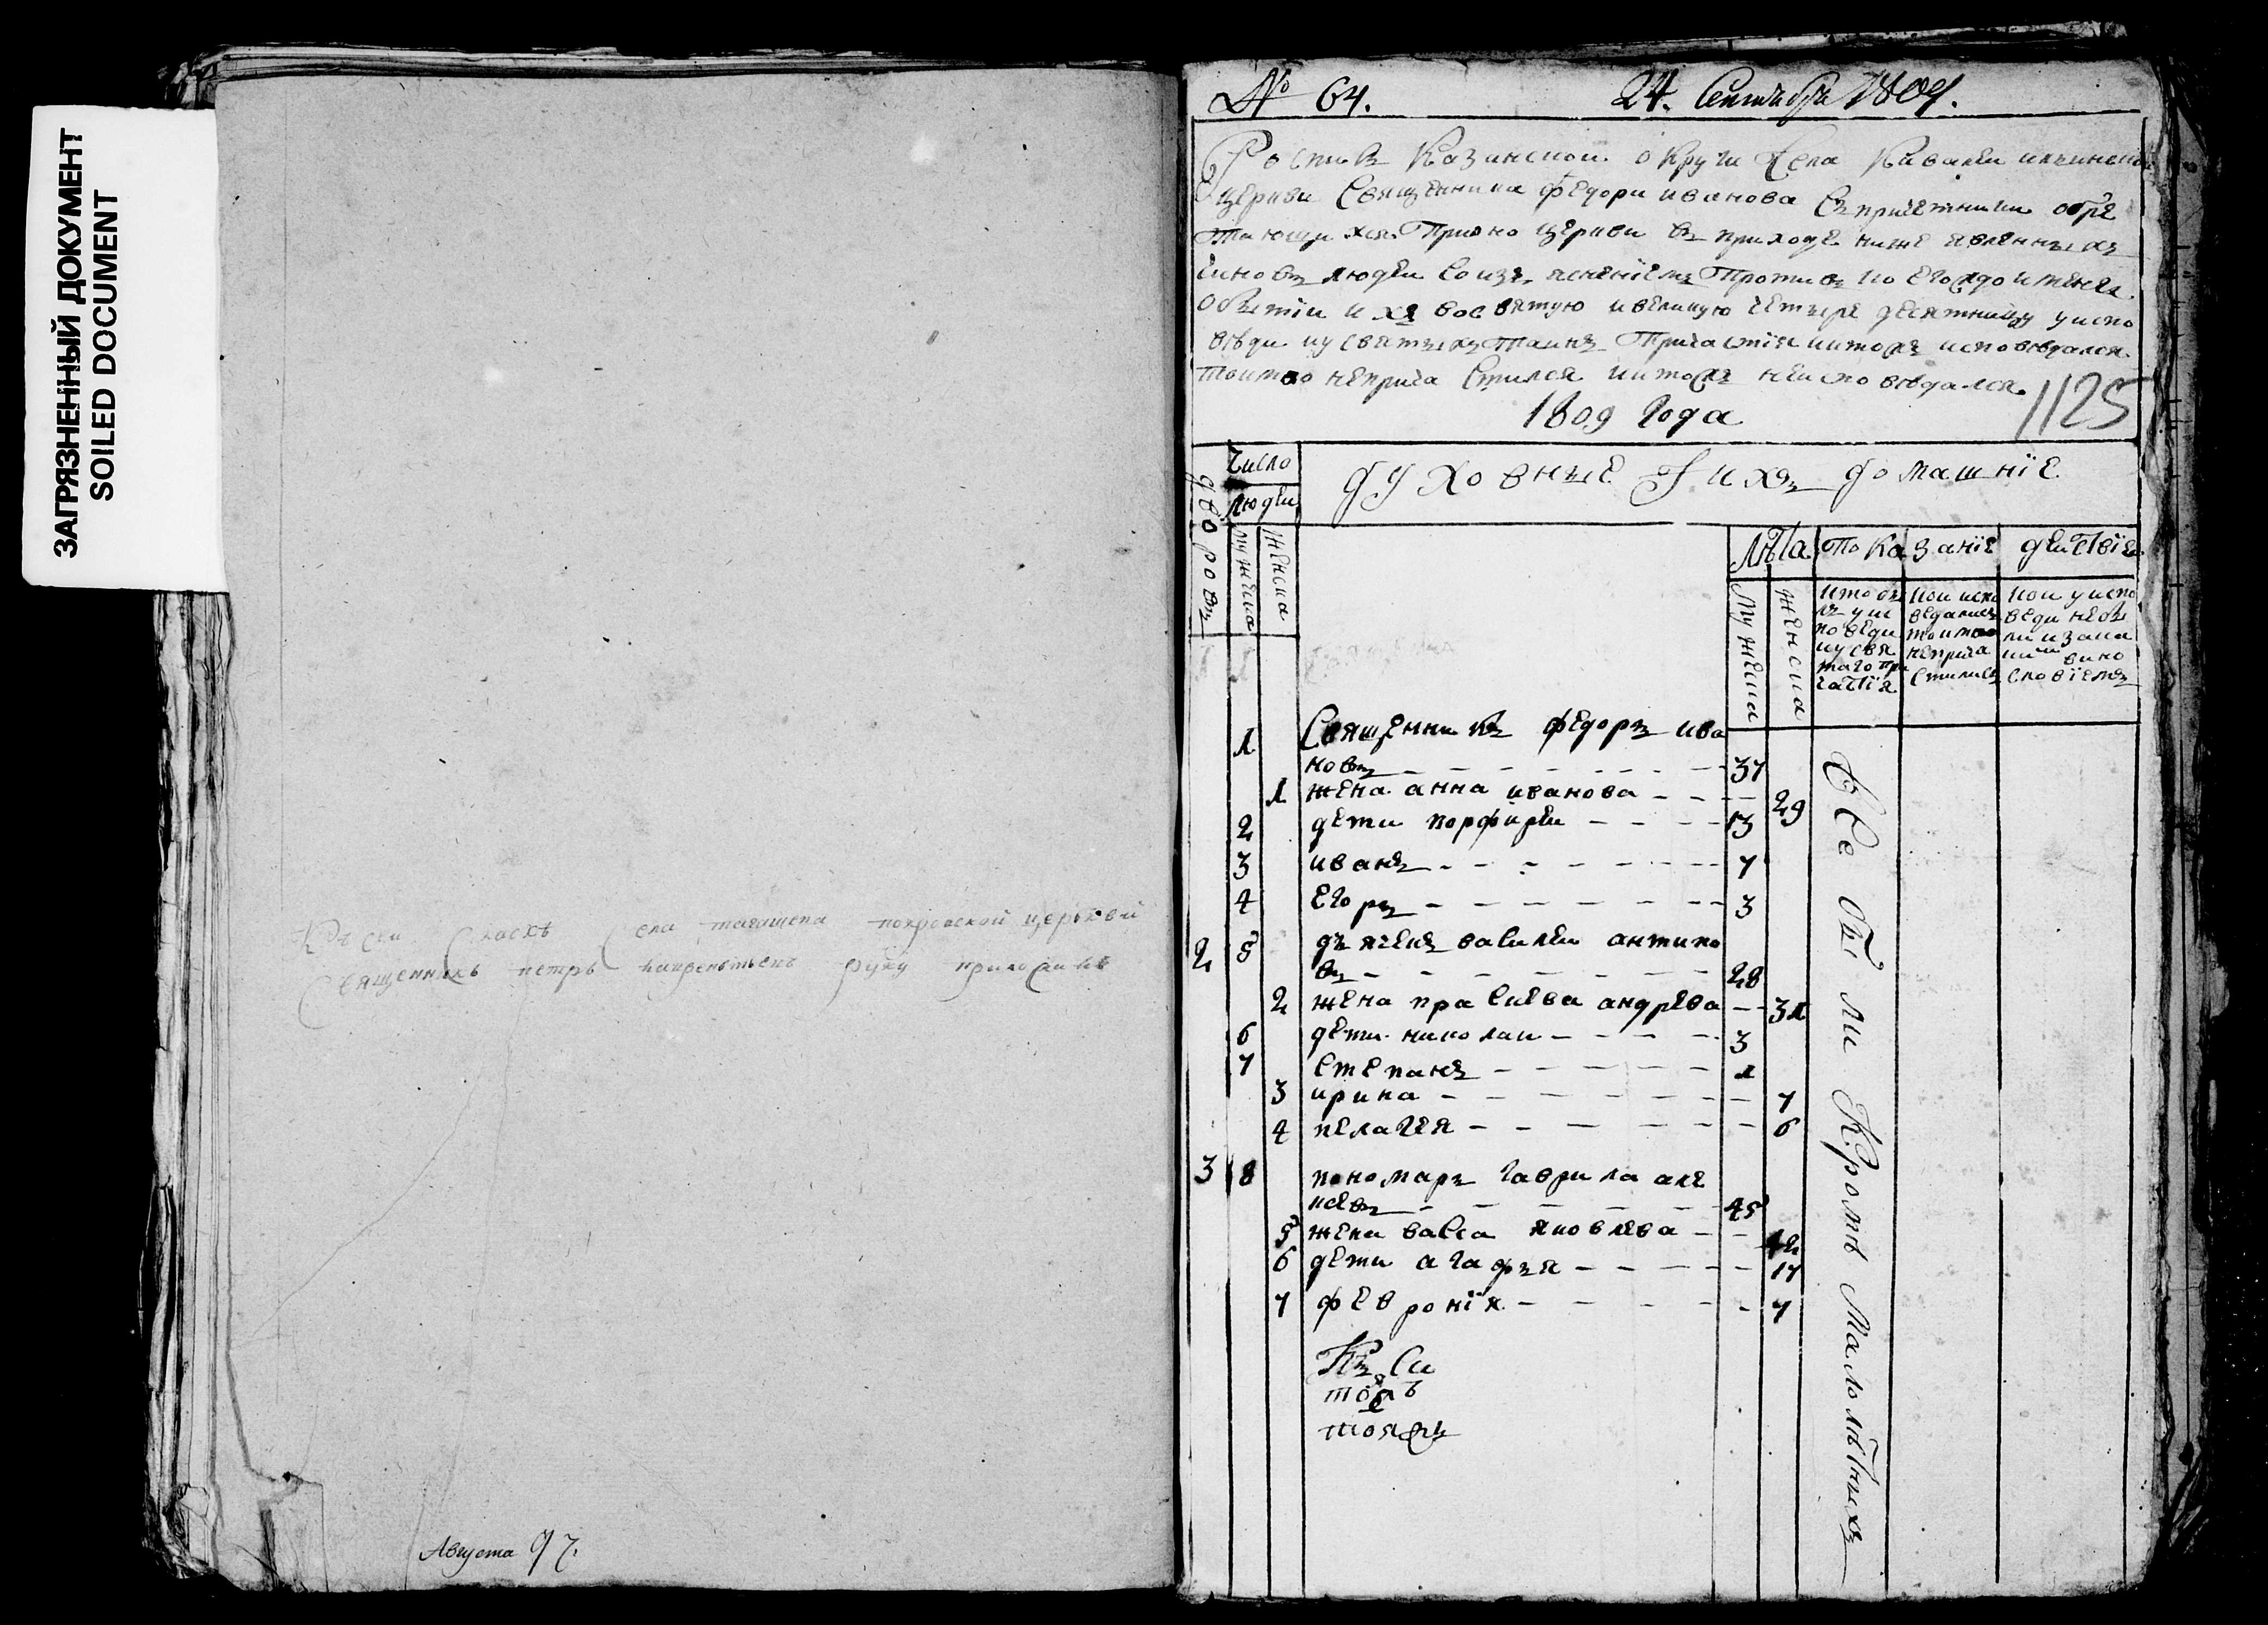 ЗАГРЯЗНЕННЫЙ ДОКУМЕНТ
SOILED DOCUMENT
Къ сей Сказкѣ Села покровской церькви
Священникъ петръ руку приложилъ
Августа 97.
№ 64. 24. Сентября 1809.
Роспись Казинской округи Села церкви Священника федора иванова Съ причетники обре
тающихся При оно церкви Въ приходе ниже явленныхъ
чиновъ людеи со изъяснениемъ Противъ коегождо имени
о бытии их во святую и великую четыре десятницу у испо
вѣди и у святыхъ таинъ Причастия и кто исповѣдался
токмо не причастился и кто не исповѣдался
1809 года
1125
дворовъ
Число
людеи
мужеска
женска
духовные и ихъ домашнїе
Лѣта
мужеска
женска
показанїе действїе
кто былъ у исповеди и у святаго причастїя
кои исповедались токмо не причастились
кои у исповеди не были и за каким винословїемъ
1 Священникъ федоръ ива
новъ 37
1 жена анна иванова 29
2 дети порфиреи 13
3 иванъ 7
4 егоръ 3
2 5 дьячекъ василеи антипо
въ 28
2 жена прасковья андрева 31
6 дети николаи 3
7 степанъ 1
3 ирина 7
4 пелагея 6
3 8 пономарь гаврила але
ксевъ 45
5 жена васса яковлева 42
6 дети агафья 17
7 феврония 7
Все были Кромѣ Малолѣтныхъ
Къ Си